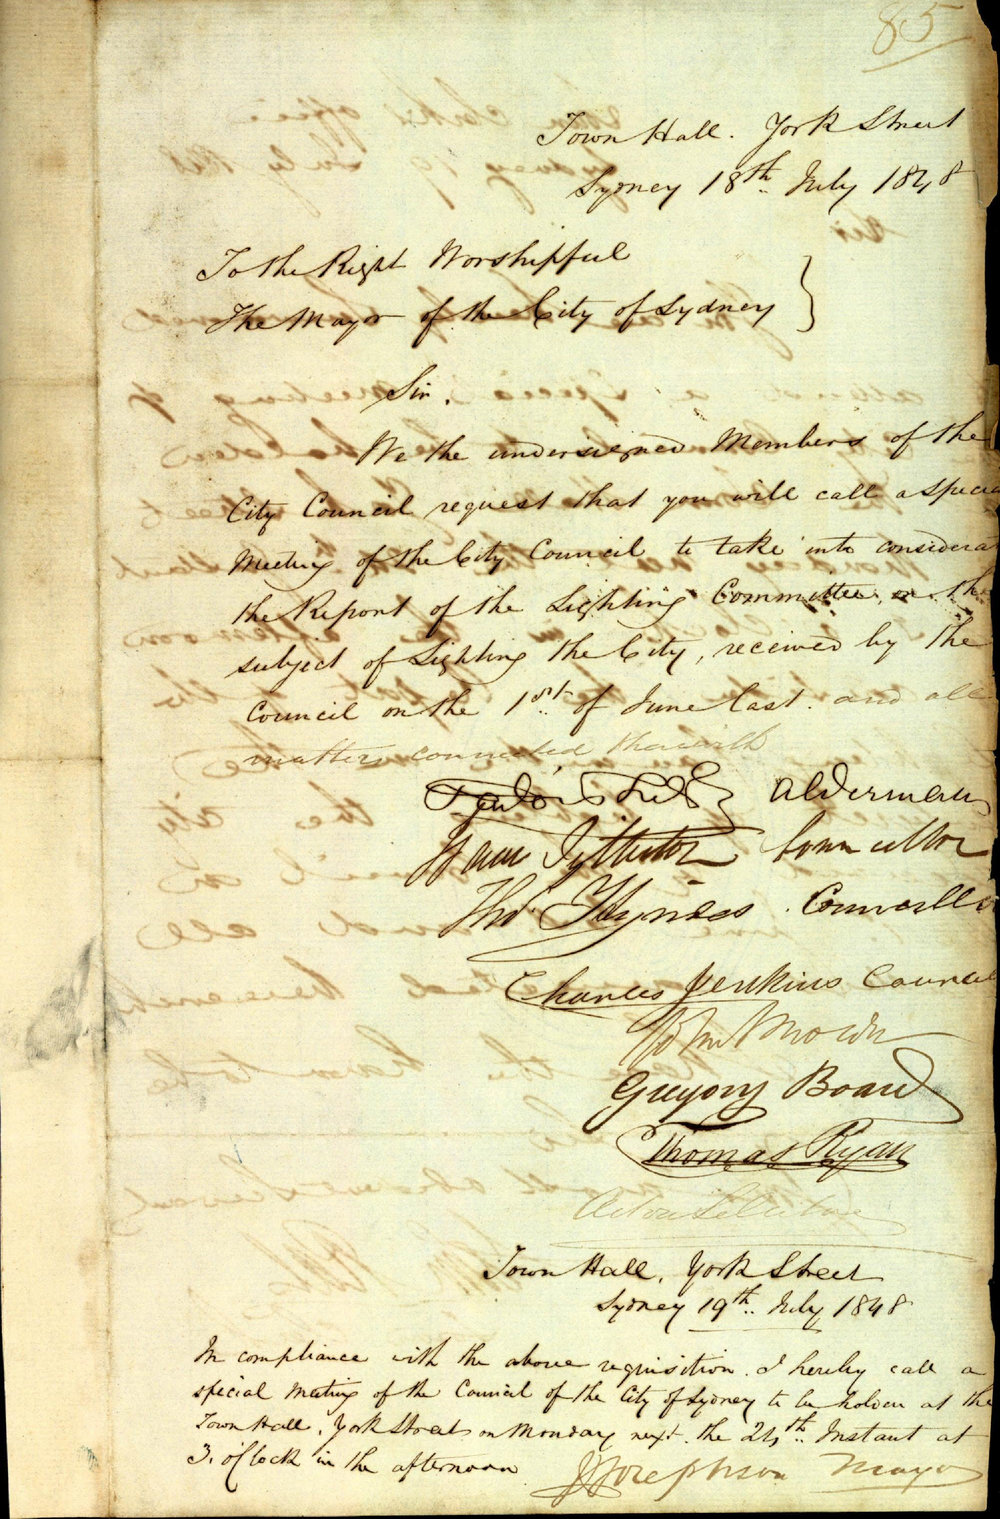 85
Town Hall. York Street
Sydney 18th. July 1848
To the Right Worshipful
The Mayor of the City of Sydney }
Sir.
We the undersigned Members of the
City Council request that you will call a specia
Meeting of the City Council to take into considerat
the Report of the Lighting Committee, on the
subject of Lighting the City, received by the
Council on the 1st. of June last. and all
matters connected therewith
Alderman
Councillor
Thos. Hyndes. Councillo
Charles Jenkins Council
John Brown
Gregory Board
Thomas Ryan
Town Hall, York Street
Sydney 19th. July 1848
In compliance with the above requisition. I hereby call a
special Meeting of the Council of the City of Sydney to be holden at the
Town Hall, York Street on Monday next. the 24th. Instant at
3. o'Clock in the afternoon
J Josephson Mayor